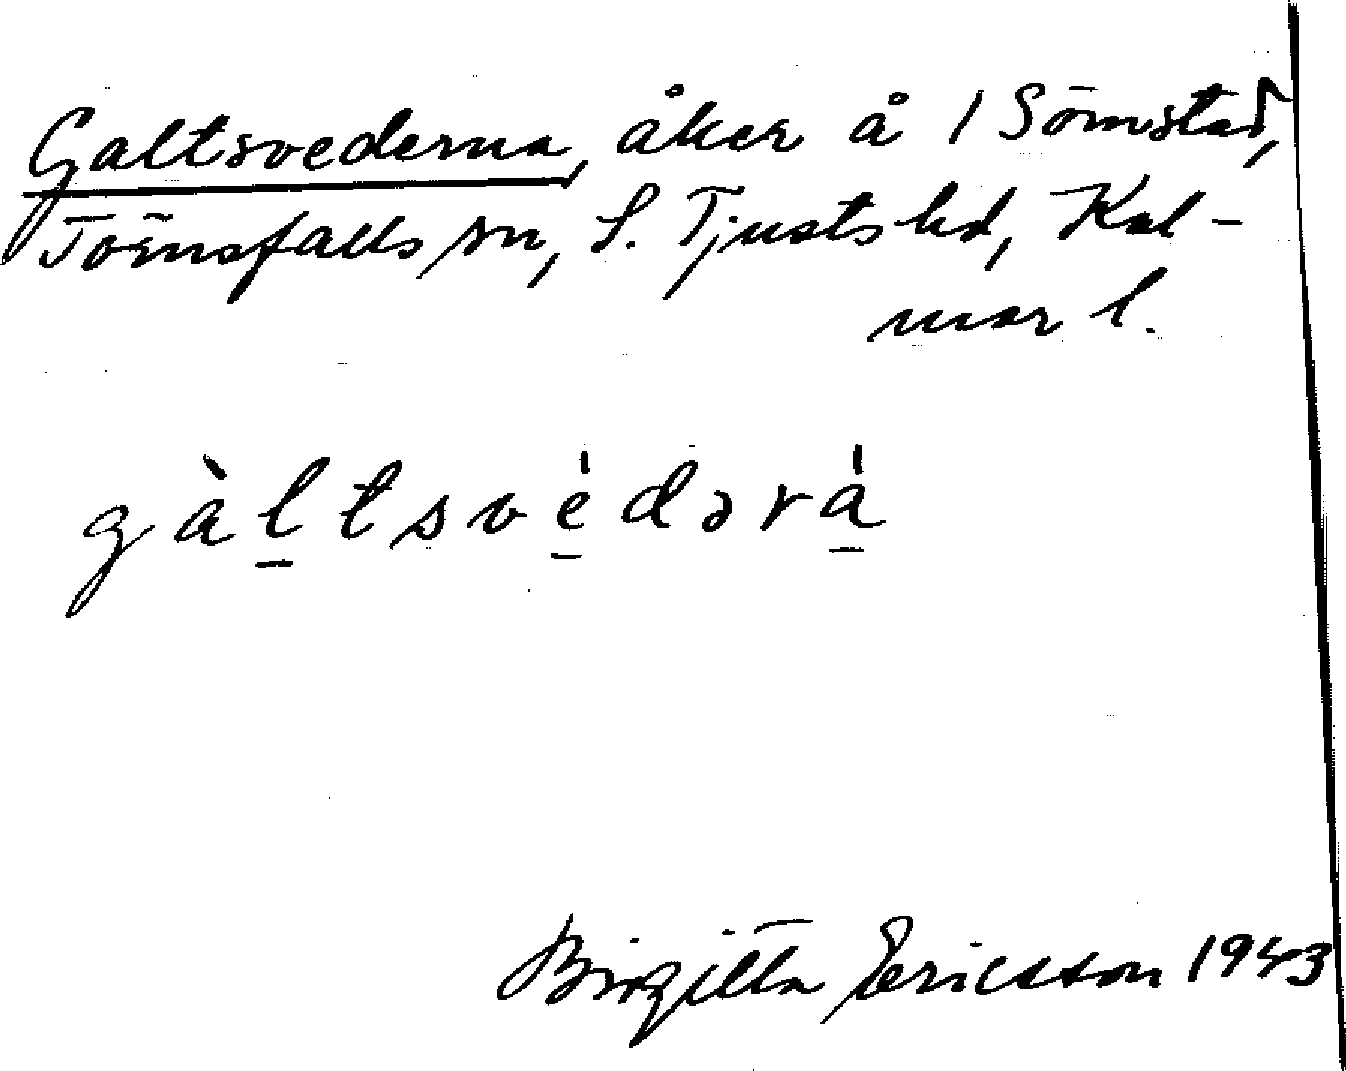 Galtsvederna, åker å 1 Sömstad,
Törnsfalls sn, S. Tjusts hd, Kal-
mar l.
gàl̲tsvé̲dərá̲
Birgitta Ericsson 1943